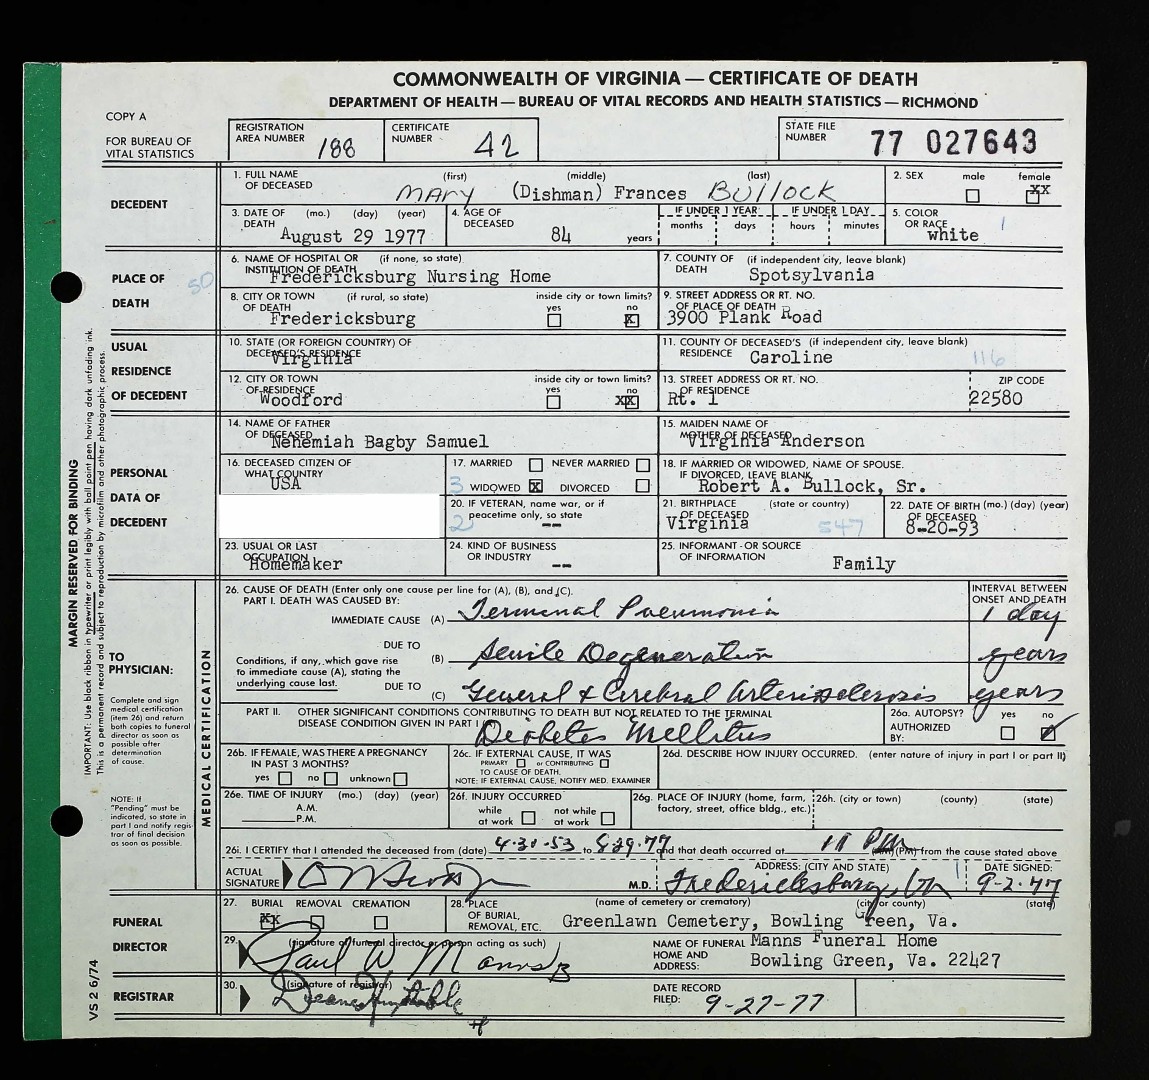 COMMONWEALTH OF VIRGINIA — CERTIFICATE OF DEATH
DEPARTMENT OF HEALTH — BUREAU OF VITAL RECORDS AND HEALTH STATISTICS — RICHMOND
COPY A
FOR BUREAU OF VITAL STATISTICS
REGISTRATION AREA NUMBER 188
CERTIFICATE NUMBER 42
STATE FILE NUMBER 77 027643
DECEDENT
1. FULL NAME OF DECEASED (first) (middle) (last)
MARY (Dishman) Frances BULLOCK
2. SEX male female XX
3. DATE OF DEATH (mo.) (day) (year) August 29 1977
4. AGE OF DECEASED 84 years
IF UNDER 1 YEAR months days
IF UNDER 1 DAY hours minutes
5. COLOR OR RACE white 1
PLACE OF DEATH
50
6. NAME OF HOSPITAL OR INSTITUTION OF DEATH (if none, so state) Fredericksburg Nursing Home
7. COUNTY OF DEATH (if independent city, leave blank) Spotsylvania
8. CITY OR TOWN OF DEATH (if rural, so state) Fredericksburg
inside city or town limits? yes no X
9. STREET ADDRESS OR RT. NO. OF PLACE OF DEATH 3900 Plank Road
USUAL RESIDENCE OF DECEDENT
10. STATE (OR FOREIGN COUNTRY) OF DECEASED'S RESIDENCE Virginia
11. COUNTY OF DECEASED'S RESIDENCE (if independent city, leave blank) Caroline 116
12. CITY OR TOWN OF RESIDENCE Woodford
inside city or town limits? yes no XX
13. STREET ADDRESS OR RT. NO. OF RESIDENCE Rt. 1
ZIP CODE 22580
PERSONAL DATA OF DECEDENT
14. NAME OF FATHER OF DECEASED Nehemiah Bagby Samuel
15. MAIDEN NAME OF MOTHER OF DECEASED Virginia Anderson
16. DECEASED CITIZEN OF WHAT COUNTRY USA
17. MARRIED NEVER MARRIED
3 WIDOWED X DIVORCED
18. IF MARRIED OR WIDOWED, NAME OF SPOUSE. IF DIVORCED, LEAVE BLANK
Robert A. Bullock, Sr.
20. IF VETERAN, name war, or if peacetime only, so state --
2
21. BIRTHPLACE OF DECEASED (state or country) Virginia 547
22. DATE OF BIRTH (mo.) (day) (year) OF DECEASED 8-20-93
23. USUAL OR LAST OCCUPATION Homemaker
24. KIND OF BUSINESS OR INDUSTRY --
25. INFORMANT - OR SOURCE OF INFORMATION Family
TO PHYSICIAN:
Complete and sign medical certification (item 26) and return both copies to funeral director as soon as possible after determination of cause.
NOTE: If "Pending" must be indicated, so state in part I and notify registrar of final decision as soon as possible.
MEDICAL CERTIFICATION
26. CAUSE OF DEATH (Enter only one cause per line for (A), (B), and (C).
PART I. DEATH WAS CAUSED BY:
INTERVAL BETWEEN ONSET AND DEATH
IMMEDIATE CAUSE (A) Terminal Pneumonia 1 day
DUE TO
Conditions, if any, which gave rise to immediate cause (A), stating the underlying cause last.
(B) Senile Degeneration years
DUE TO
(C) General & Cerebral Arteriosclerosis years
PART II. OTHER SIGNIFICANT CONDITIONS CONTRIBUTING TO DEATH BUT NOT RELATED TO THE TERMINAL DISEASE CONDITION GIVEN IN PART I
Diabetes Mellitus
26a. AUTOPSY? AUTHORIZED BY: yes no ✓
26b. IF FEMALE, WAS THERE A PREGNANCY IN PAST 3 MONTHS?
yes no unknown
26c. IF EXTERNAL CAUSE, IT WAS
PRIMARY or CONTRIBUTING
TO CAUSE OF DEATH.
NOTE: IF EXTERNAL CAUSE, NOTIFY MED. EXAMINER
26d. DESCRIBE HOW INJURY OCCURRED. (enter nature of injury in part I or part II)
26e. TIME OF INJURY (mo.) (day) (year)
A.M.
P.M.
26f. INJURY OCCURRED
while at work not while at work
26g. PLACE OF INJURY (home, farm, factory, street, office bldg., etc.)
26h. (city or town) (county) (state)
26i. I CERTIFY that I attended the deceased from (date) 4-30-53 to 8-29-77 and that death occurred at 11 PM (AM) (PM) from the cause stated above
ACTUAL SIGNATURE M.D.
ADDRESS: (CITY AND STATE) Fredericksburg, Va
1
DATE SIGNED: 9-2-77
FUNERAL DIRECTOR
27. BURIAL REMOVAL CREMATION
XX
28. PLACE OF BURIAL, REMOVAL, ETC.
(name of cemetery or crematory) (city or county) (state)
Greenlawn Cemetery, Bowling Green, Va.
29. (signature of funeral director or person acting as such)
Paul W Manns
NAME OF FUNERAL HOME AND ADDRESS:
Manns Funeral Home
Bowling Green, Va. 22427
REGISTRAR
30. (signature of registrar)
DATE RECORD FILED: 9-27-77
MARGIN RESERVED FOR BINDING
IMPORTANT: Use black ribbon in typewriter or print legibly with ball point pen having dark unfading ink.
This is a permanent record and subject to reproduction by microfilm and other photographic process.
VS 2 6/74